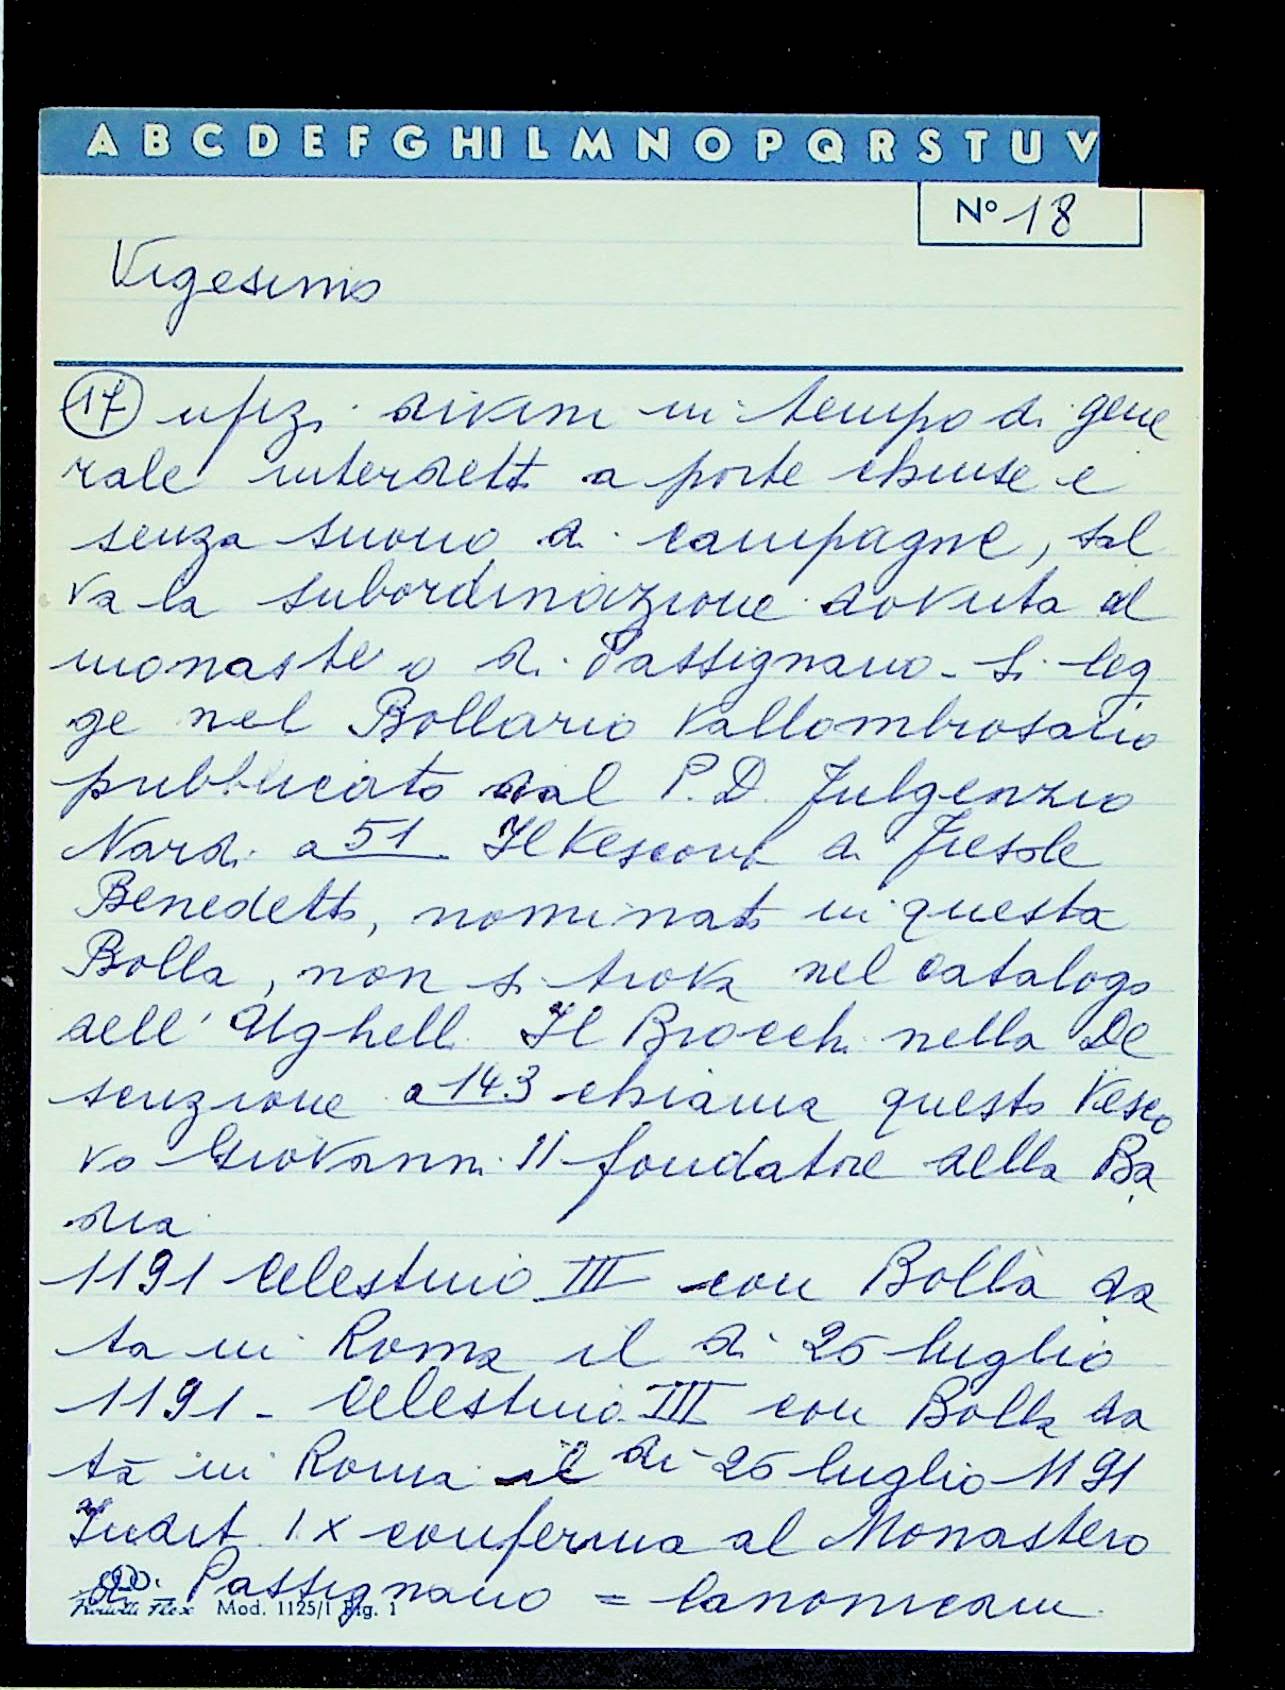 A B C D E F G HI L M N O P Q R S T U V
N° 18
Vigesimo
17 ufizi divini in tempo di gene
rale interdetto a porte chiuse e
senza suono di campagne, sal
va la subordinazione dovuta al
monastero di Passignano - Si leg
ge nel Bollario Vallombrosano
pubblicato dal P. D. Fulgenzio
Nardi a 51. Il Vescovo di Fiesole
Benedetto, nominato in questa
Bolla, non si trova nel catalogo
dell' Ughelli Il Brocchi nella De
scrizione a 143 chiama questo Vesco
vo Giovanni il fondatore della Ba
dia
1191 Celestino III con Bolla da
ta in Roma il dì 25 luglio
1191 - Celestino III con Bolla da
ta in Roma il dì 25 luglio 1191
Indit IX conferma al Monastero
di Passignano = Canonicam
Mod. 1125/1 Rig. 1